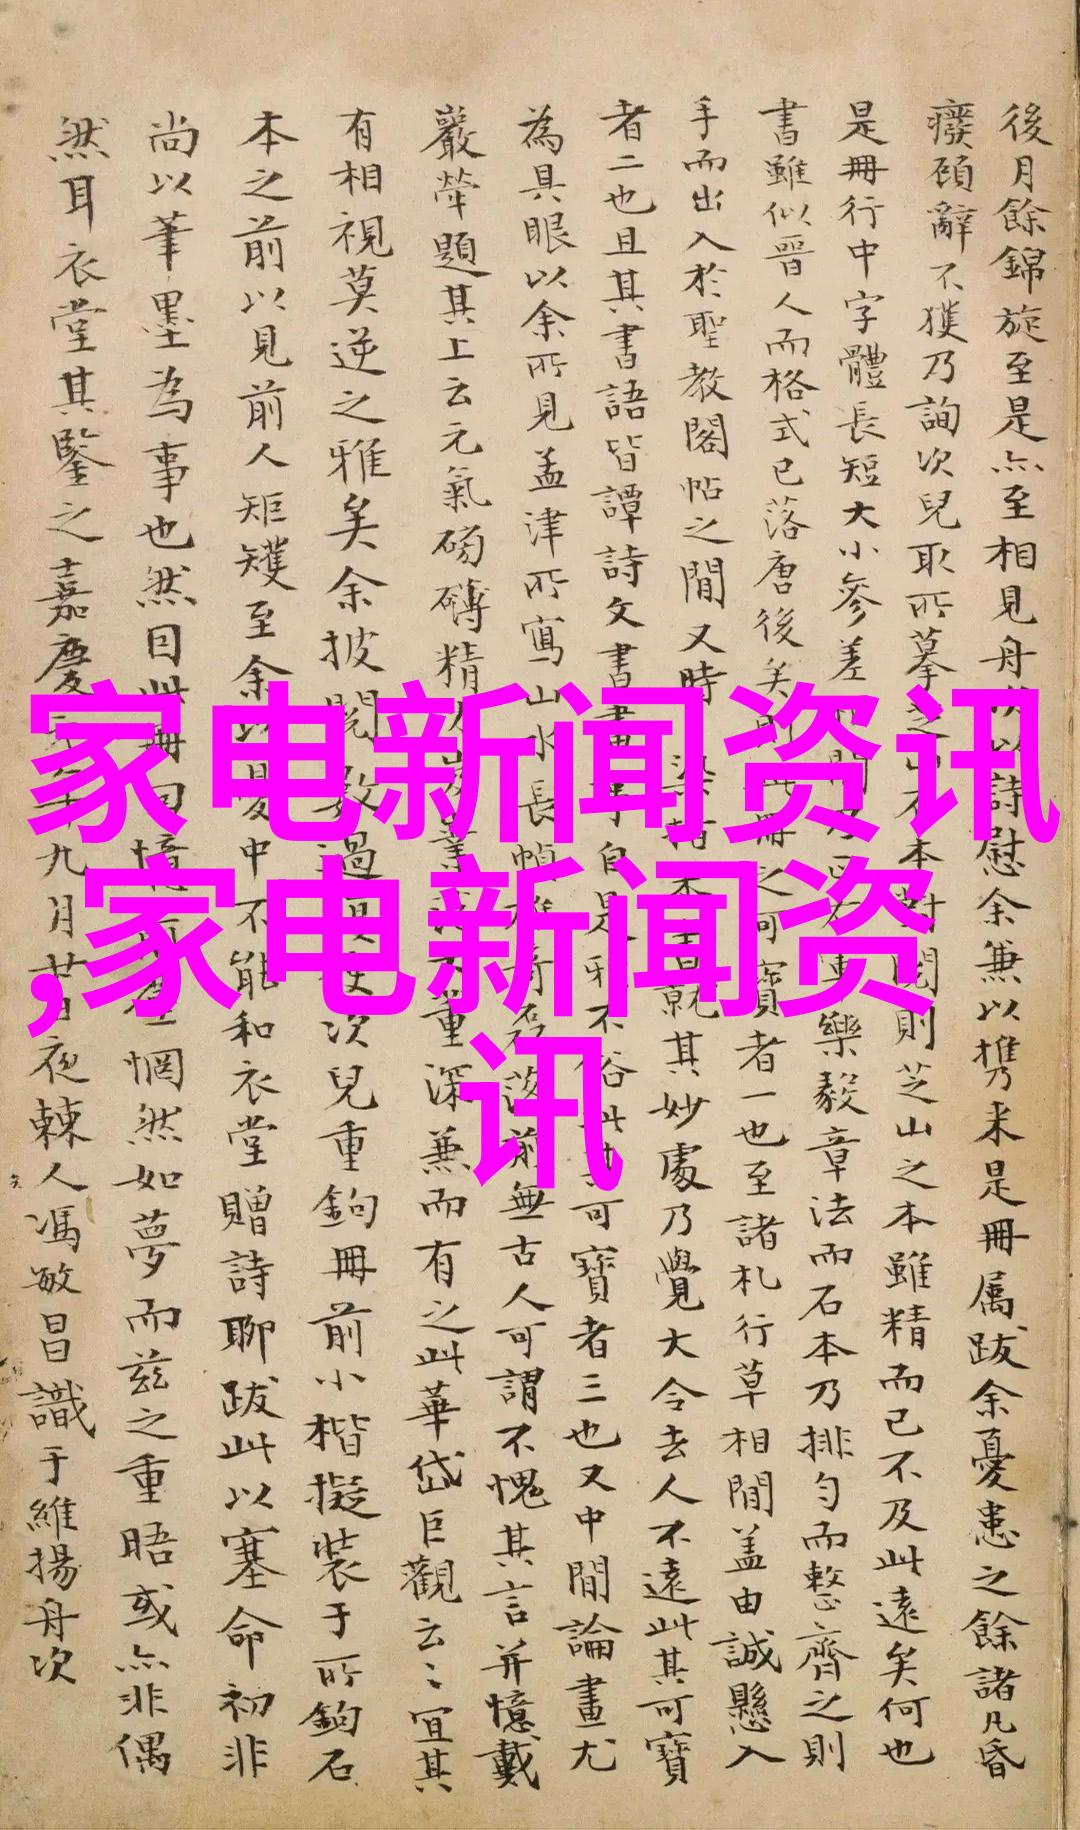 後月餘錦旋至是亦至相見舟次以詩慰余兼以攜來是冊属跋余憂患之餘諸凡昏
癈頋辭不獲乃詢次兒取所摹之石本對閱則芝山之本雖精而已不及此遠矣何也
是冊行中字體長短大小參差間樂毅章法而石本乃排勻而整齊之則
書雖似晉人而格式已落唐後矣則此冊之可寶者一也至諸札行草相間盖由誠懸入
手而出入於聖教閣帖之間又時就其妙處乃覺大令去人不遠此其可寶
者二也且其書語皆譚詩文書畫事自是雅不俗此其可寶者三也又中間論畫尤
為具眼以余所見孟津所寫山水長幀雄奇磊落前無古人可謂不愧其言并憶戴
嚴犖題其上云元氣磅礴精重深兼而有之此華岱巨觀云〻宜其
有相視莫逆之雅矣余披閱數過次兒重鉤冊前小楷擬装于所鉤石
本之前以見前人矩矱至余以憂中不能和衣堂贈詩聊跋此以塞命初非
尚以筆墨為事也然因此冊回憶惘然如夢而兹之重晤或亦非偶
然耳衣堂其鑒之嘉慶年九月廿日夜棘人馮敏昌識于維揚舟次
家电新闻资讯
,家电新闻资
讯